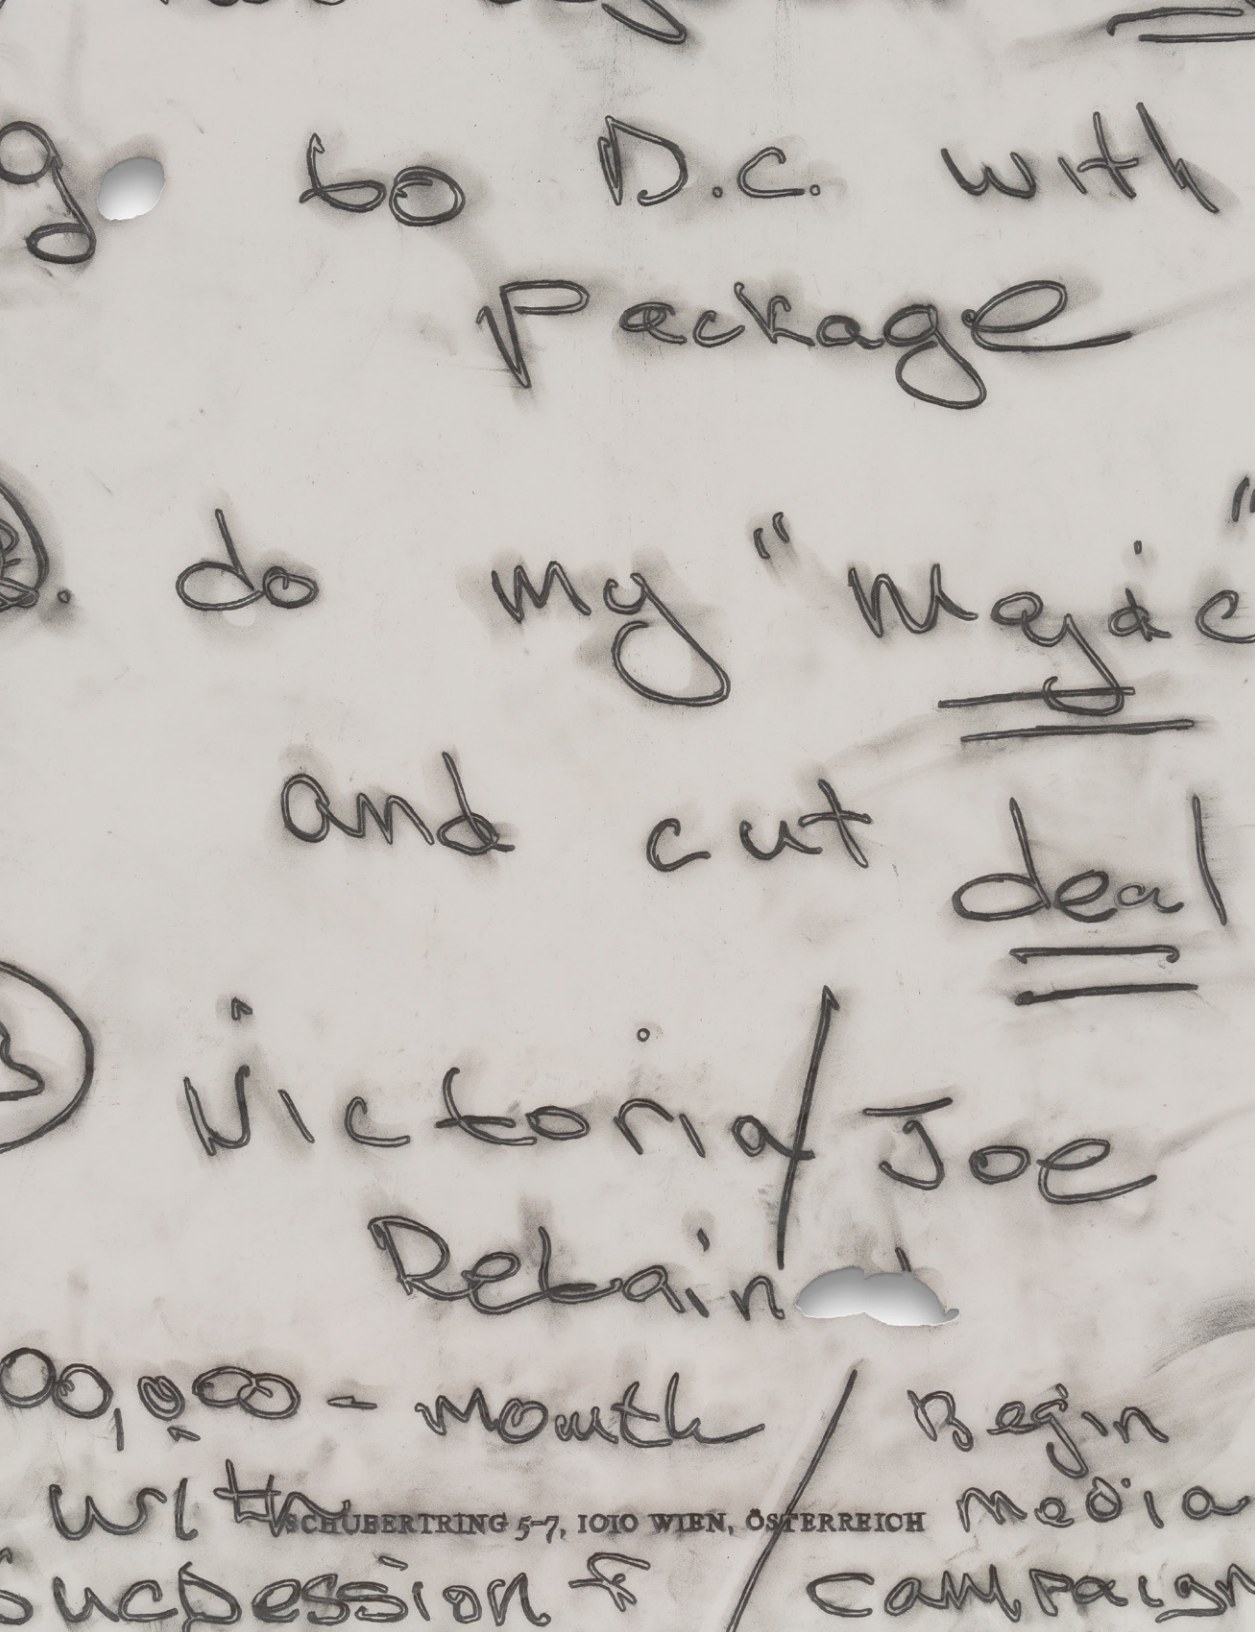 go to D.C. with
package
do my "Majic"
and cut deal
Victoria/Joe
Retain
00,000 - Month / Begin
with media
SCHUBERTRING 5-7, 1010 WIEN, ÖSTERREICH
Sucession & / campaign